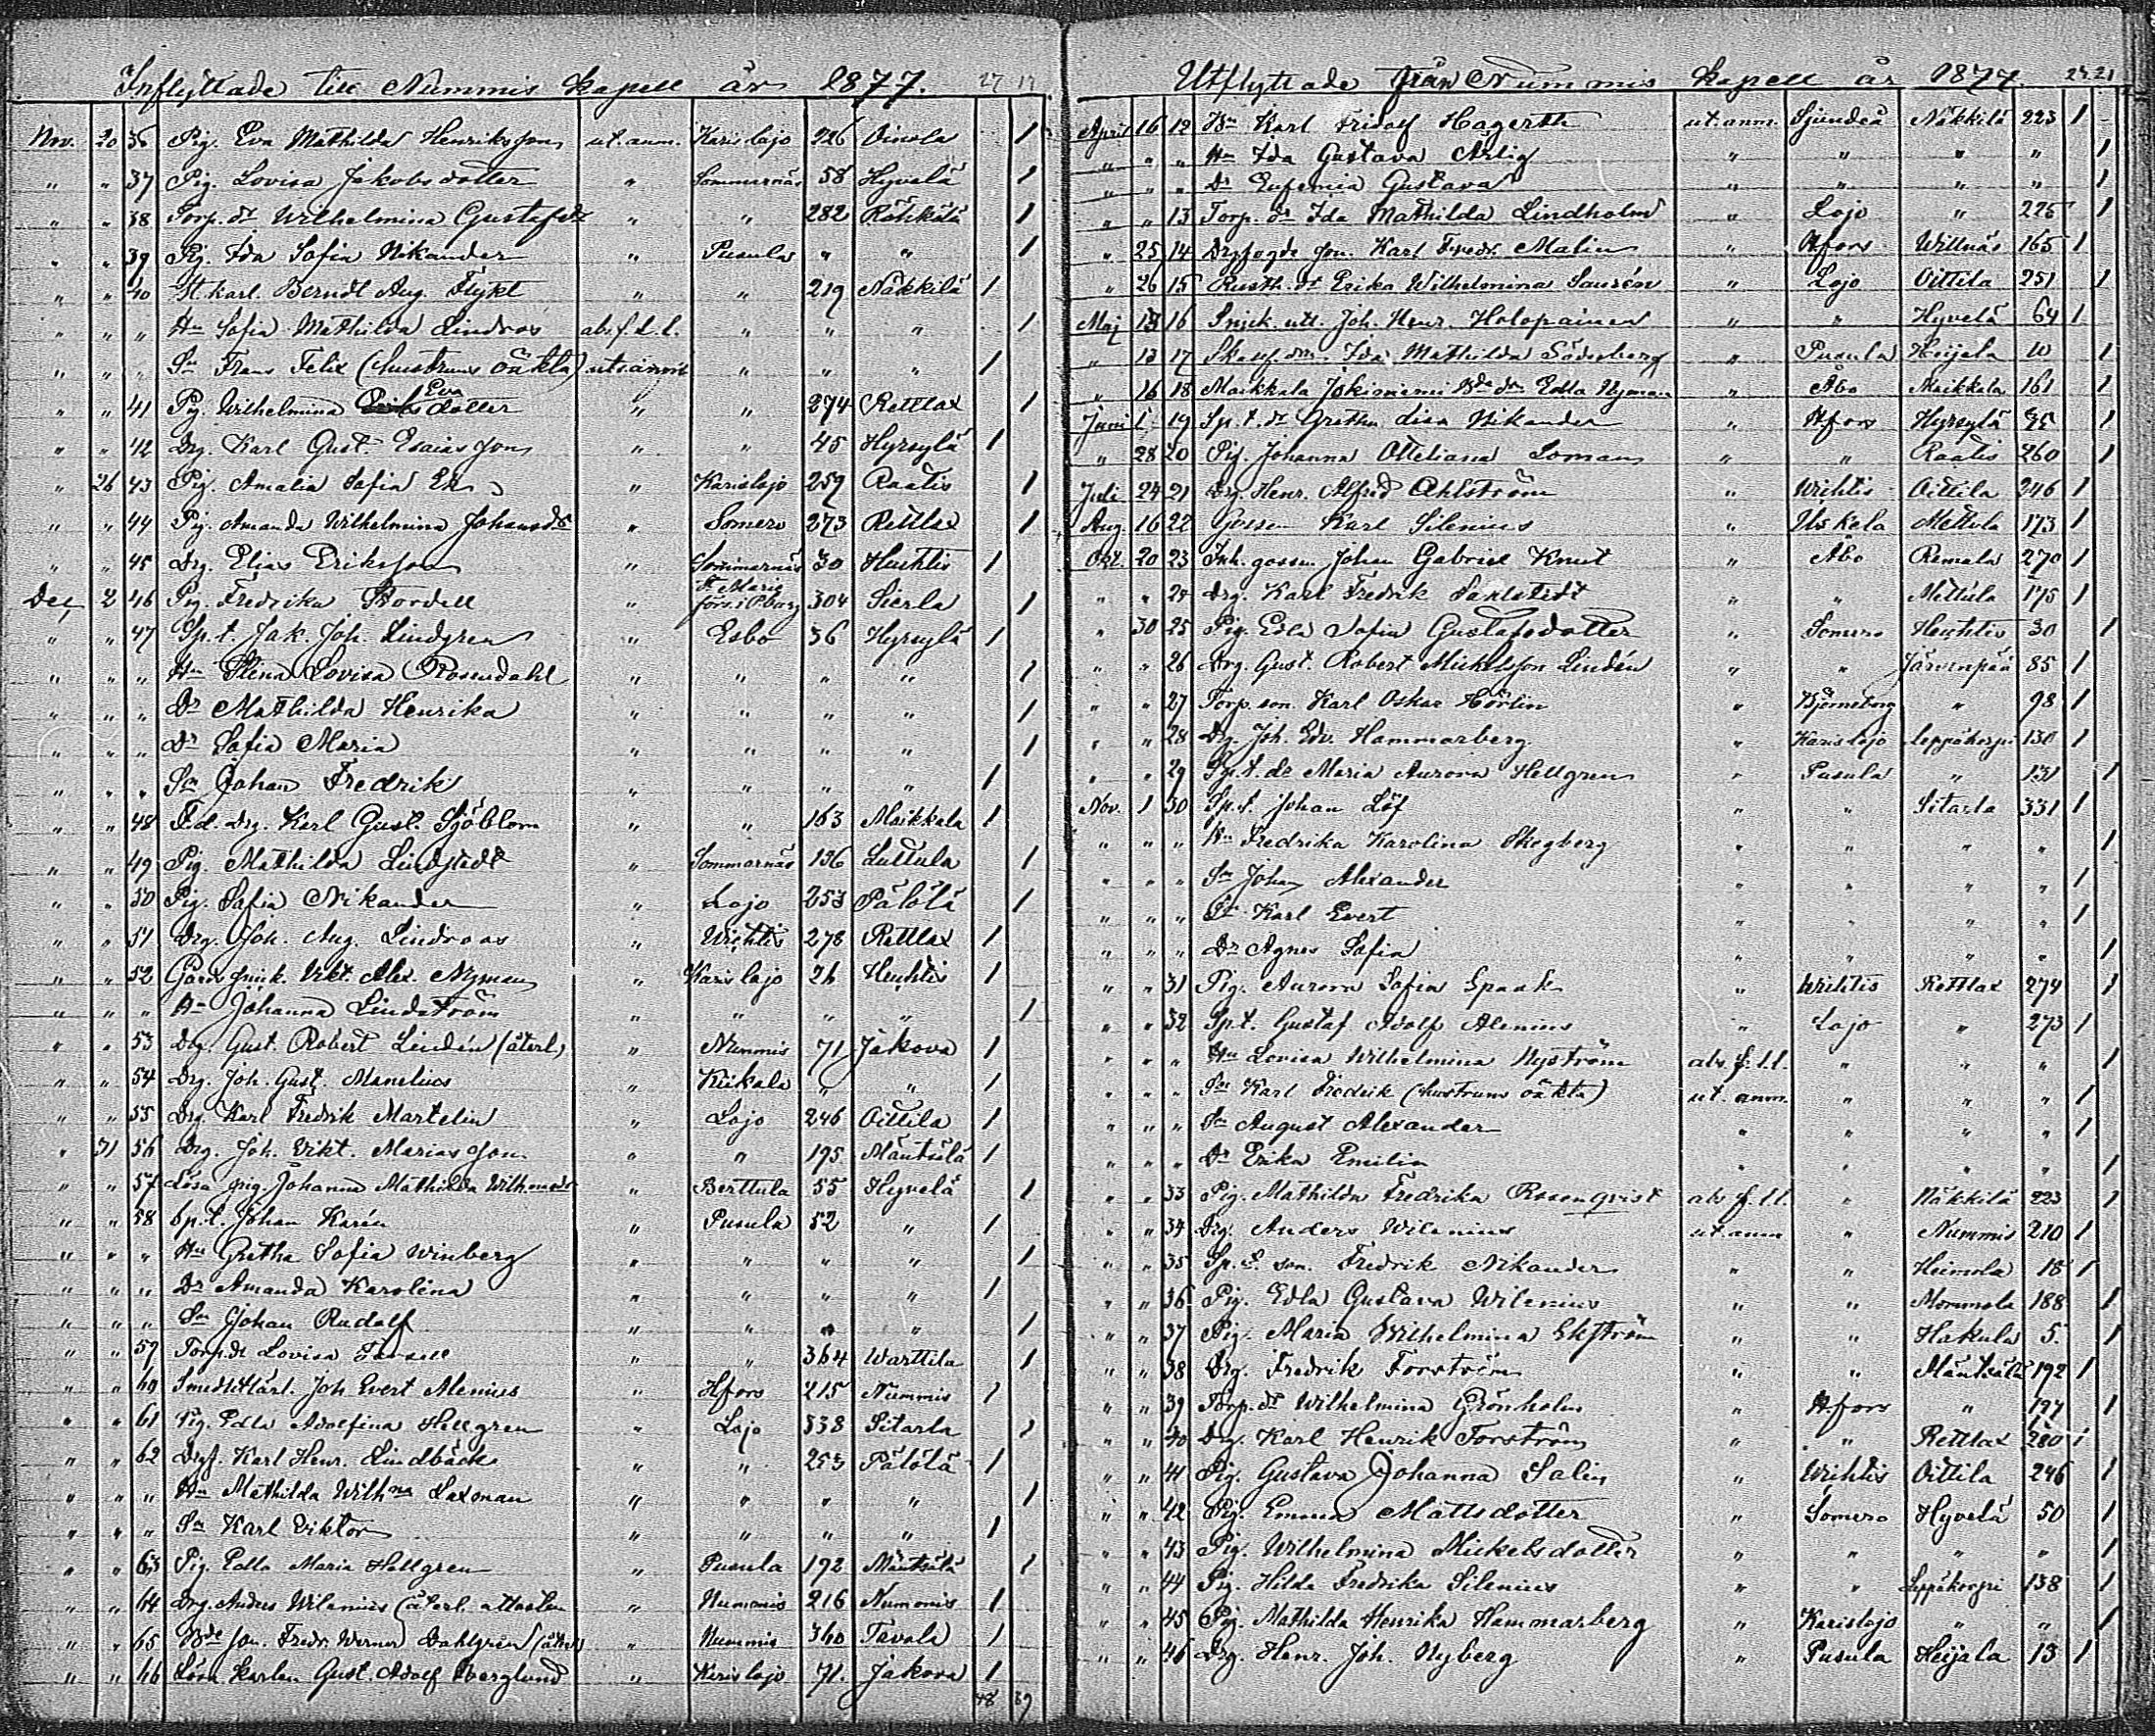 Inflyttade till Nummis kapell år 1877. 27 17
Nov. 20 36 Pig. Eva Mathilda Henriksson ut. anm. Karislojo 226 Oinola 1
„ „ 37 Pig. Lovisa Jakobsdotter „ Sommarnäs 58 Hyvelä 1
„ „ 38 Torp. dr Wilhelmina Gustafsdr „ „ 282 Rötkilä 1
„ „ 39 Pig. Ida Sofia Nikander „ Pusula „ „ 1
„ „ 40 St. karl. Berndt Aug. Flykt „ „ 219 Näkkilä 1
„ „ „ Hu Sofia Mathilda Lindroos abs. f. l. l. „ „ „ 1
„ „ „ Sn Frans Felix (hustruns oäkta) ut. anm. „ „ „ 1
„ „ 41 Pig. Wilhelmina Eva dotter „ „ 274 Rettlax 1
„ „ 42 Drg. Karl Gust. Esaiasson „ „ 45 Hyrsylä 1
„ 26 43 Pig. Amalia Sofia Ek „ Karislojo 259 Raatis 1
„ „ 44 Pig. Amanda Wilhelmina Johansdr „ Somero 273 Rettlax 1
„ „ 45 Drg. Elias Eriksson „ Sommarnäs 30 Huhtis 1
Dec. 2 46 Pig. Fredrika Nordell „ St Marie förs. i P.burg 304 Sierla 1
„ „ 47 Sp. t. Jak. Joh. Lindgren „ Esbo 36 Hyrsylä 1
„ „ „ Hu Stina Lovisa Rosendahl „ „ „ „ 1
„ „ „ Dr Mathilda Henrika „ „ „ „ 1
„ „ „ Dr Sofia Maria „ „ „ „ 1
„ „ „ Sn Johan Fredrik „ „ „ „ 1
„ „ 48 F. d. drg. Karl Gust. Sjöblom „ „ 163 Maikkala 1
„ „ 49 Pig. Mathilda Lindstedt „ Sommarnäs 136 Luttula 1
„ „ 50 Pig. Sofia Nikander „ Lojo 253 Pälölä 1
„ „ 51 Drg. Joh. Aug. Lindroos „ Wichtis 278 Rettlax 1
„ „ 52 Gårds snick. Vikt. Alex. Nyman „ Karislojo 26 Huhtis 1
„ „ „ Hu Johanna Lindström „ „ „ „ 1
„ „ 53 Drg. Gust. Robert Lindén (återl.) „ Nummis 71 Jakova 1
„ „ 54 Drg. Joh. Gust. Manelius „ Kiikala „ „ 1
„ „ 55 Drg. Karl Fredrik Martelin „ Lojo 246 Oittila 1
„ 31 56 Drg. Joh. Vikt. Mariasson „ „ 195 Mäntsälä 1
„ „ 57 Lösa pig. Johanna Mathilda Wilh.madr „ Berttula 55 Hyvelä 1
„ „ 58 Sp. t. Johan Karén „ Pusula 52 „ 1
„ „ „ Hu Gretha Sofia Winberg „ „ „ „ 1
„ „ „ Dr Amanda Karolina „ „ „ „ 1
„ „ „ Sn Johan Rudolf „ „ „ „ 1
„ „ 59 Torp. dr Lovisa „ „ 364 Warttila 1
„ „ 60 Smedslärl. Joh Evert Alenius „ Hfors 215 Nummis 1
„ „ 61 Pig. Edla Adolfina Hellgren „ Lojo 338 Sitarla 1
„ „ 62 Drgf. Karl Henr. Lindbäck „ „ 253 Pälölä 1
„ „ „ Hu Mathilda Wilhna Laxman „ „ „ „ 1
„ „ „ Sn Karl Viktor „ „ „ „ 1
„ „ 63 Pig. Edla Maria Hellgren „ Pusula 192 Mäntsälä 1
„ „ 64 Drg. Anders Wilenius (återl. attesten „ Nummis 216 Nummis 1
„ „ 65 Bde son. Fredr. Werner Dahlgren (återl.) „ Nummis 360 Tavola 1
„ „ 66 Lösa karlen Gust. Adolf Berglund „ Karislojo 71. Jakova 1
48 39
Utflyttade från Nummis kapell år 1877. 24 21
April 16 12 Bn Karl Fridolf Hagerth ut. anm. Sjundeå Näkkilä 223 1
„ „ „ Hu Ida Gustava Arlig „ „ „ „ 1
„ „ „ Dr Eufemia Gustava „ „ „ „ 1
„ „ 13 Torp. dr Ida Mathilda Lindholm „ Lojo „ 225 1
„ 25 14 Drgfogde son. Karl Fredr. Malin „ Hfors Willnäs 165 1
„ 26 15 Rusth. dr Erika Wilhelmina Saurén „ Lojo Oittila 251 1
Maj 13 16 Snick. utl. Joh. Henr. Holopainen „ „ Hyvelä 64 1
„ 13 17 Ida Mathilda Söderberg „ Pusula Heijala 10 1
„ 16 18 Maikkala Jokiniemi Bde dr Edla Nyman „ Åbo Maikkala 161 1
Juni 19 Sp. t. dr Gretha Lisa Nikander „ Hfors Hyrsylä 35 1
„ 28 20 Pig. Johanna Otteliana Loman „ „ Raatis 260 1
Juli 24 21 Drg. Henr. Alfred Ahlström „ Wichtis Oittila 246 1
Aug. 16 22 Gossen Karl Silenius „ Uskela Mettula 173 1
Okt. 20 23 Inh. gossen Johan Gabriel Knut „ Åbo Remala 270 1
„ „ 24 Drg. Karl Fredrik Sahlstedt „ „ Mettula 175 1
„ 30 25 Pig. Edla Sofia Gustafsdotter „ Somero Huhtis 30 1
„ „ 26 Drg. Gust. Robert Mickelsson Lindén „ „ Järvenpää 85 1
„ „ 27 Torp. son Karl Oskar Hörlin „ Björneborg „ 98 1
„ „ 28 Drg. Joh. Edv. Hammarberg „ Karislojo Leppäkorpi 130 1
„ „ 29 Sp. t. dr Maria Aurora Hellgren „ Pusula „ 131 1
Nov. 1 30 Sp. t. Johan Löf „ „ Sitarla 331 1
„ „ „ Hu Fredrika Karolina Skogberg „ „ „ „ 1
„ „ „ Sn Johan Alexander „ „ „ „ 1
„ „ „ Sn Karl Evert „ „ „ „ 1
„ „ „ Dr Agnes Sofia „ „ „ „ 1
„ „ 31 Pig. Aurora Sofia Spaak „ Wichtis Rettlax 274 1
„ „ 32 Sp. t. Gustaf Adolf Alenius „ Lojo „ 273 1
„ „ „ Hu Lovisa Wilhelmina Nyström abs. f. l. l. „ „ „ 1
„ „ „ Sn Karl Fredrik (hustruns oäkta) ut. anm. „ „ „ 1
„ „ „ Sn August Alexander „ „ „ „ 1
„ „ „ Dr Erika Emilia „ „ „ „ 1
„ „ 33 Pig. Mathilda Fredrika Rosenqvist abs. f. l. l. „ Näkkilä 223 1
„ „ 34 Drg. Anders Wilenius ut. anm „ Nummis 210 1
„ „ 35 Sp. t. son. Fredrik Nikander „ „ Heimola 18 1
„ „ 36 Pig. Edla Gustava Wilenius „ „ Mommola 188 1
„ „ 37 Pig. Maria Wilhelmina Ekström „ „ Hakula 5 1
„ „ 38 Drg. Fredrik Forström „ „ Mäntsälä 192 1
„ „ 39 Torp. dr Wilhelmina Grönholm „ Hfors „ 197 1
„ „ 40 Drg. Karl Henrik Forström „ „ Rettlax 280 1
„ „ 41 Pig. Gustava Johanna Salin „ Wichtis Oittila 246 1
„ „ 42 Pig. Emma Mattsdotter „ Somero Hyvelä 50 1
„ „ 43 Pig. Wilhelmina Mickelsdotter „ „ „ „ 1
„ „ 44 Pig. Hilda Fredrika Silenius „ „ Leppäkorpi 138 1
„ „ 45 Pig. Mathilda Henrika Hammarberg „ Karislojo „ „ 1
„ „ 46 Drg. Henr. Joh. Nyberg „ Pusula Heijala 13 1